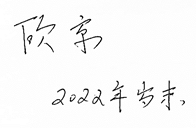 欣京
2022年岁末、